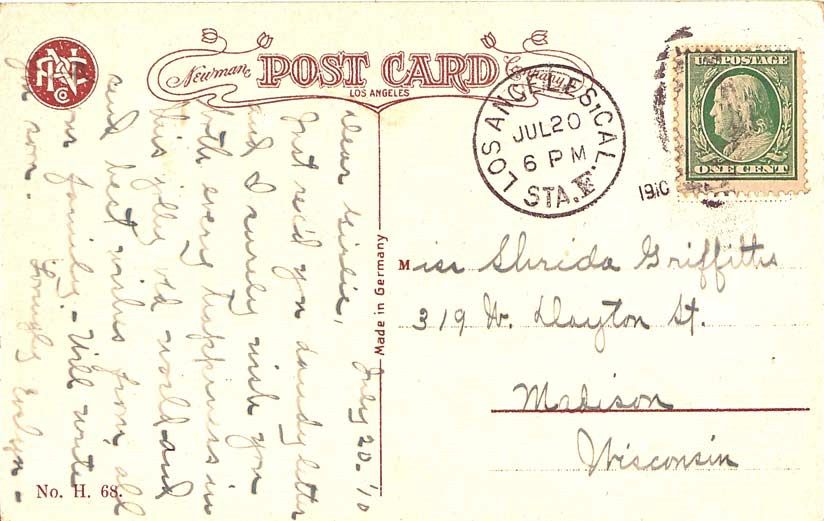 Newman POST CARD Company
LOS ANGELES
LOS ANGELES, CAL.
JUL 20
6 PM
STA. F
1910
U.S. POSTAGE
ONE CENT
Made in Germany
Miss Shrida Griffiths
319 W. Dayton St.
Madison
Wisconsin
July 20-'10
Dear Girlie,
Just rec'd you dandy letter
and I surely wish you
both every happiness in
this jolly old world and
send best wishes from all
our family. - Will write
you soon. Lovingly Evelyn -
No. H. 68.